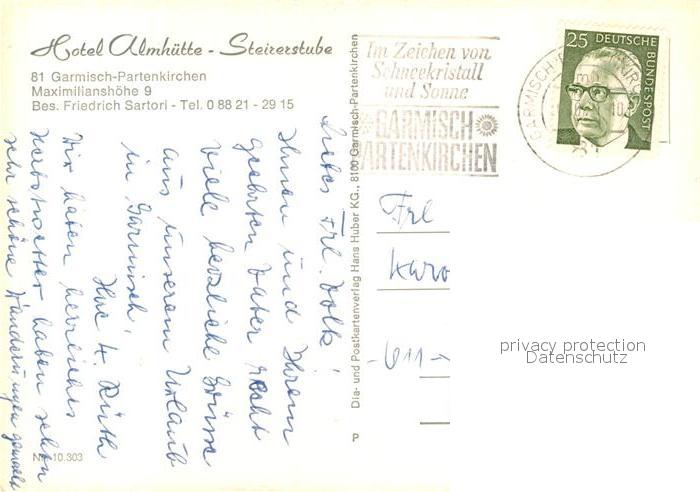 Hotel Almhütte - Steirerstube
81 Garmisch-Partenkirchen
Maximilianshöhe 9
Bes. Friedrich Sartori - Tel. 0 88 21 - 29 15
Im Zeichen von
Schneekristall
und Sonne
GARMISCH
PARTENKIRCHEN
25 DEUTSCHE
BUNDESPOST
GARMISCH-
Liebes Frl. Volk!
Ihnen und Ihrem
geehrten Vater recht
viele herzliche Grüsse
aus unserem Urlaub
in Garmisch,
Ihre
Wir haben herrliches
Herbstwetter haben schon
sehr schöne Wanderungen gemacht
Dia- und Postkartenverlag Hans Huber KG., 8100 Garmisch-Partenkirchen
Frl
Karo
-611-
P
Nr. 10.303
privacy protection
Datenschutz